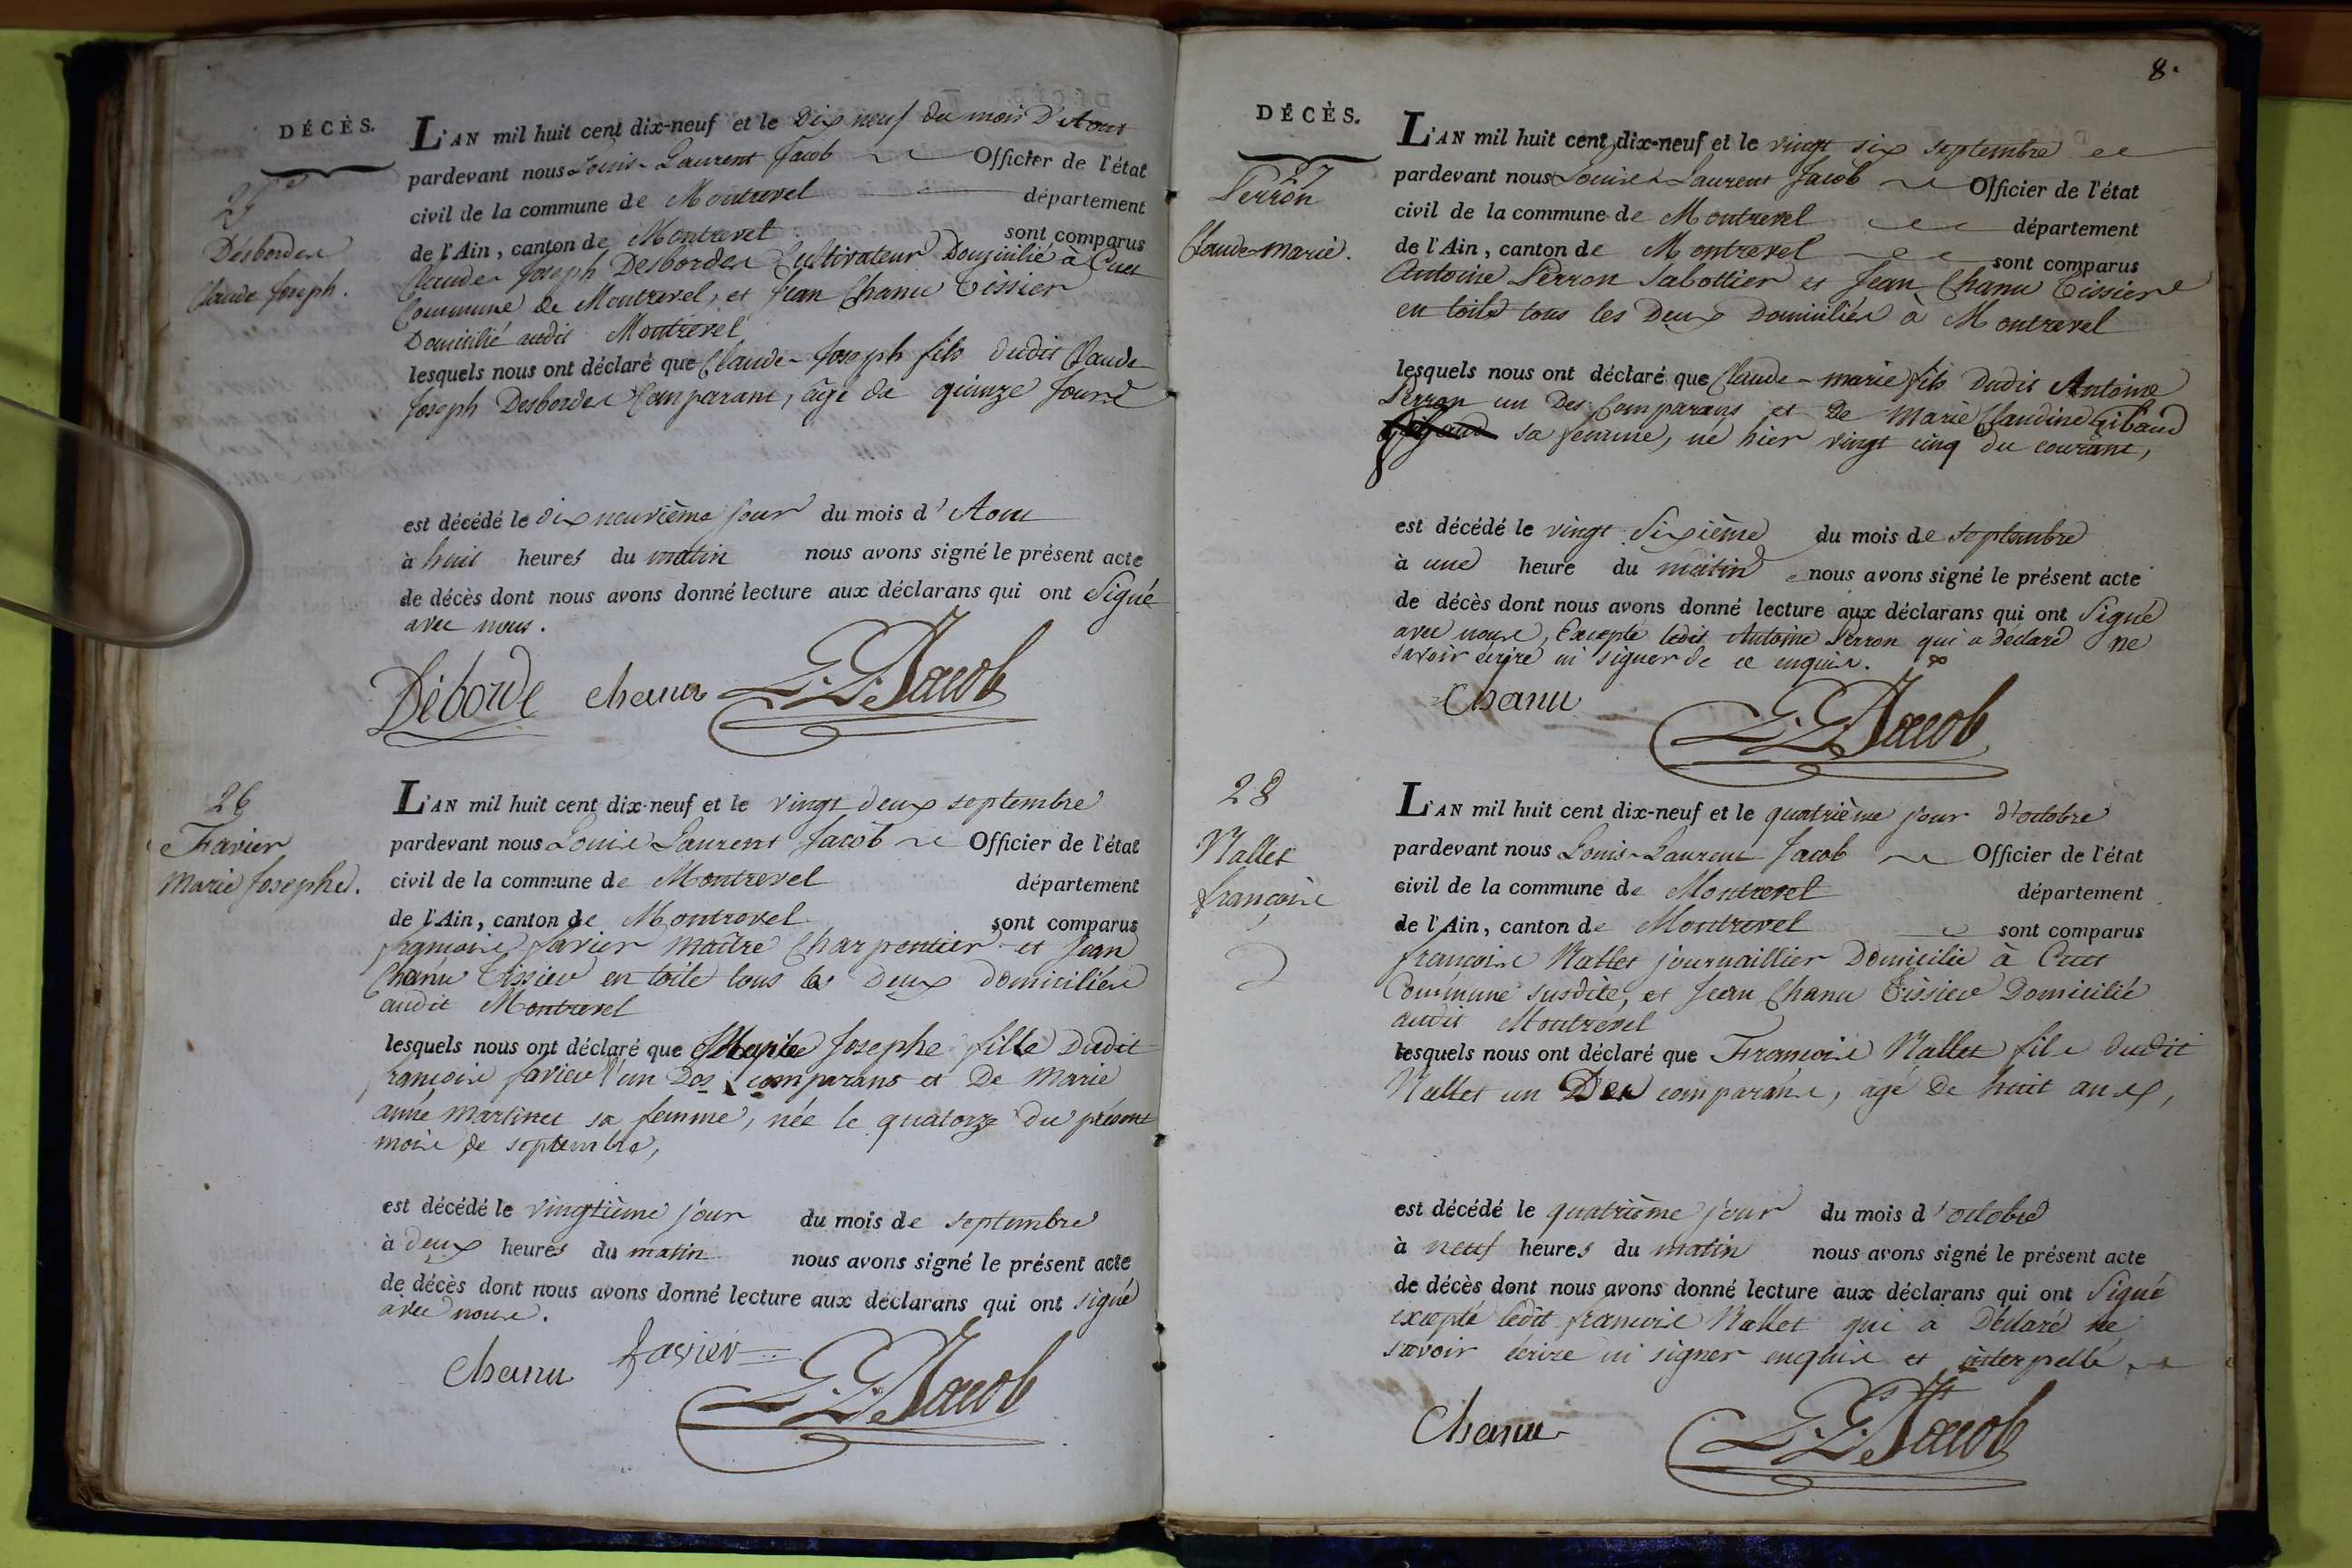 DÉCÈS.
25e
Desbordes
Claude Joseph.
L'AN mil huit cent dix-neuf et le Dix neuf du mois D'Aout
pardevant nous Louis Laurent Jacob Officier de l'état
civil de la commune de Montrevel département
de l'Ain, canton de Montrevel sont comparus
Claude Joseph Desbordes Cultivateur Domicilié à Cuet
Commune de Montrevel, et Jean Chanu Tissier
Domicilié audit Montrevel
lesquels nous ont déclaré que Claude-Joseph fils dudit Claude
Joseph Desbordes Comparant, âgé de quinze Jours
est décédé le dix neuvième jour du mois d'Aout
à huit heures du matin nous avons signé le présent acte
de décès dont nous avons donné lecture aux déclarans qui ont Signé
avec nous.
Déborde chanu L. L. Jacob
26
Favier
Marie Josephe.
L'AN mil huit cent dix-neuf et le vingt deux septembre
pardevant nous Louis Laurent Jacob Officier de l'état
civil de la commune de Montrevel département
de l'Ain, canton de Montrevel sont comparus
françois favier maître Charpentier et Jean
Chanu Tissier en toile tous les Deux domiciliés
audit Montrevel
lesquels nous ont déclaré que Marie Josephe fille Dudit
françois favier l'un Des comparans et De Marie
anne Martinet sa femme, née le quatorze du présent
mois de septembre,
est décédé le vingtième jour du mois de septembre
à deux heures du matin nous avons signé le présent acte
de décès dont nous avons donné lecture aux déclarans qui ont signé
avec nous.
Chanu favier L. L. Jacob
8.
DÉCÈS.
27
Perron
Claude marie.
L'AN mil huit cent dix-neuf et le vingt six septembre
pardevant nous Louis Laurent Jacob Officier de l'état
civil de la commune de Montrevel département
de l'Ain, canton de Montrevel sont comparus
Antoine Perron Sabottier et Jean Chanu Tissier
en toile tous les Deux Domiciliés à Montrevel
lesquels nous ont déclaré que Claude-marie fils Dudit Antoine
Perron un Des Comparans et De Marie Claudine Gibaud
sa femme, né hier vingt cinq du courant,
est décédé le vingt Sixième du mois de septembre
à une heure du matin nous avons signé le présent acte
de décès dont nous avons donné lecture aux déclarans qui ont Signé
avec nous, Excepté ledit Antoine Perron qui a déclaré ne
savoir écrire ni signer de ce enquis.
Chanu L. L. Jacob
28
Nallet
françois
L'AN mil huit cent dix-neuf et le quatrième jour d'octobre
pardevant nous Louis-Laurent Jacob Officier de l'état
civil de la commune de Montrevel département
de l'Ain, canton de Montrevel sont comparus
françois Nallet journaillier Domicilié à Cuet
Commune susdite, et Jean Chanu Tissier Domicilié
audit Montrevel
lesquels nous ont déclaré que François Nallet fils dudit
Nallet un Des comparans, agé de huit ans,
est décédé le quatrième jour du mois d'octobre
à neuf heures du matin nous avons signé le présent acte
de décès dont nous avons donné lecture aux déclarans qui ont Signé
excepté ledit françois Nallet qui a Déclaré ne
savoir écrire ni signer enquis et interpellé
Chanu L. L. Jacob